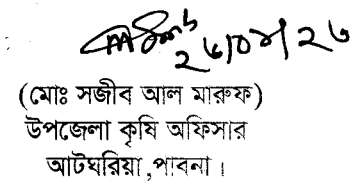 ২৬/০৮/২৩
(মোঃ সজীব আল মারুফ)
উপজেলা কৃষি অফিসার
আটঘরিয়া,পাবনা।